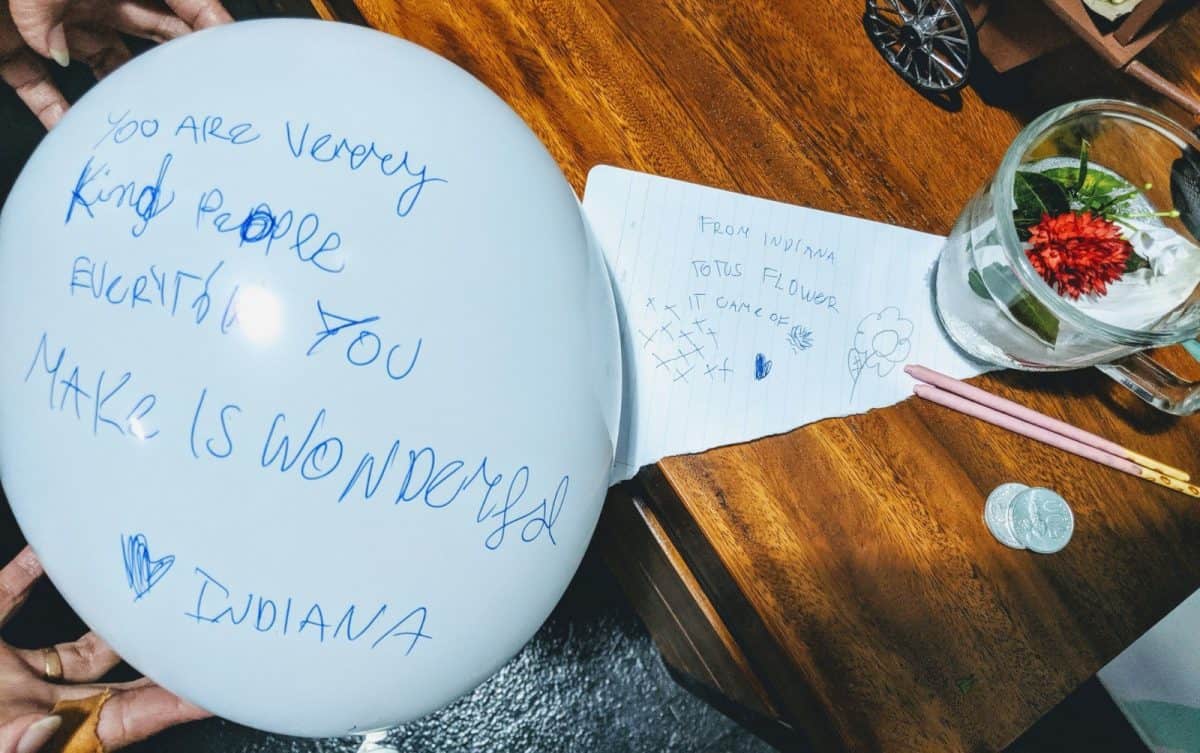 YOU ARE Verery
Kind People
EVERYTO
YOU
MAKE IS WONDERfal
INDIANA
FROM INDIANA
TOTUS FLOWER
IT CAME OF